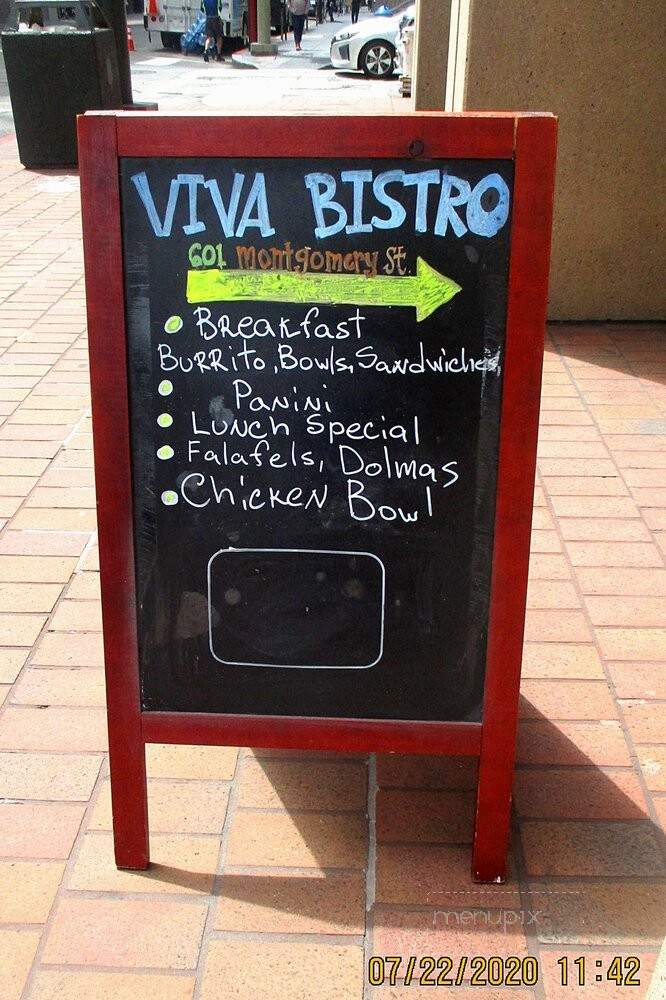 VIVA BISTRO
601 montgomery St.
Breakfast
Burrito, Bowls, Sandwiches,
Panini
Lunch Special
Falafels, Dolmas
Chicken Bowl
menupix
07/22/2020 11:42